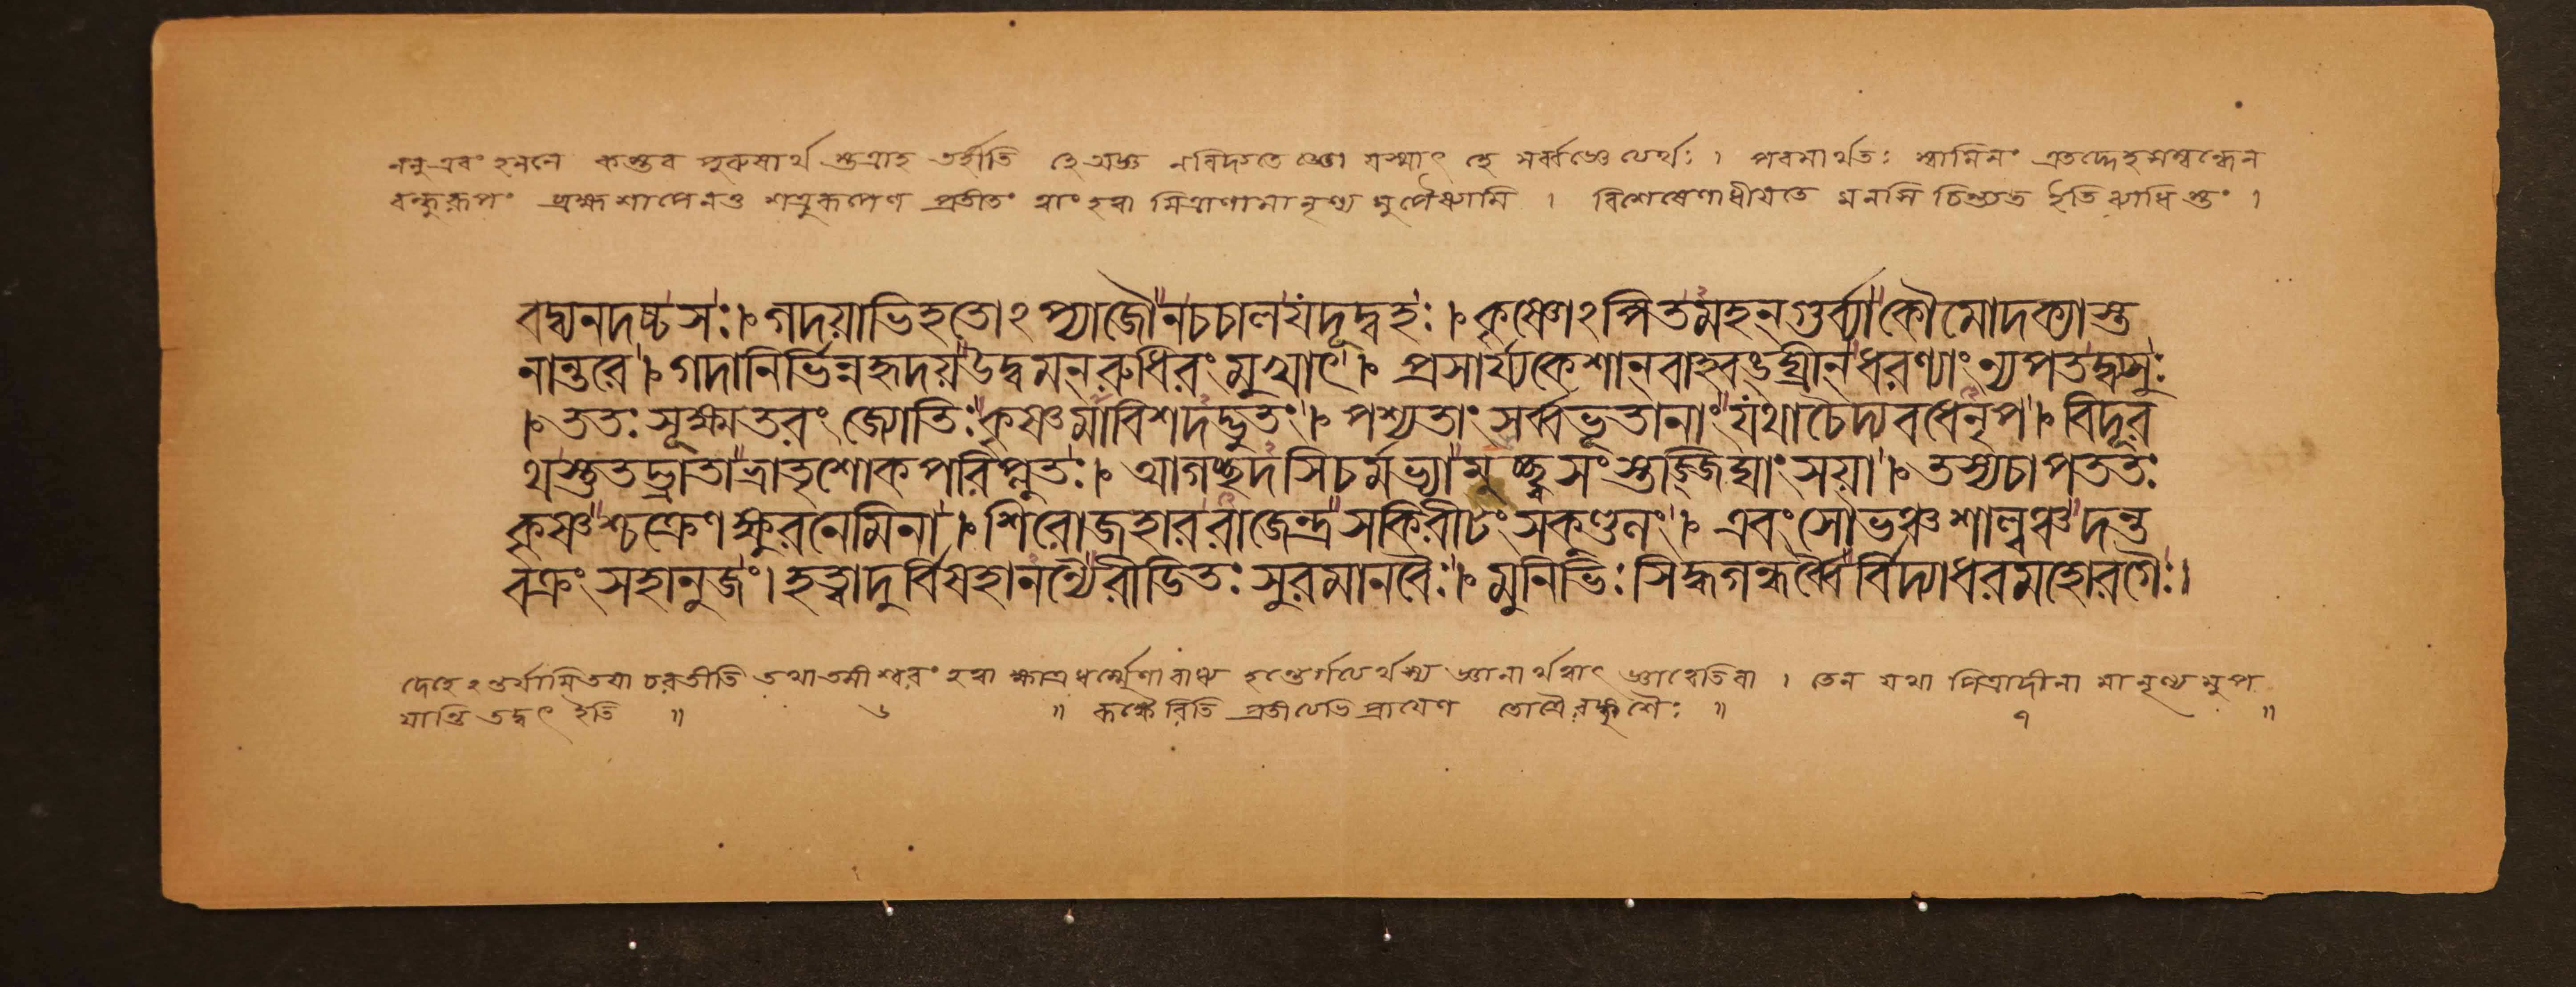 ননু এবং হননে কস্তব পুরুষার্থ স্তত্রাহ তর্হীতি হে অজ্ঞ নবিদ্যতে জ্ঞো যস্মাৎ হে সর্ব্বজ্ঞেত্যর্থঃ । পরমার্থতঃ স্বামিনং এতদ্দেহসম্বন্ধেন
বন্ধুরূপং ব্রহ্মশাপেনতু শত্রুরূপেণ প্রতীতং ত্বাং হত্বা মিত্রাণামানৃণ্য মুপৈষ্যামি । বিশেষেণাধীয়তে মনসি চিন্ত্যত ইতি ব্যাধি স্তং ।
বদ্ব্যনদচ্চসঃ । গদয়াভিহতোঽপ্যাজৌনচচালযদূদ্বহঃ । কৃষ্ণোঽপিতমহন্গুর্ব্যাকৌমোদক্যাস্ত
নান্তরে । গদানির্ভিন্নহৃদয়উদ্বমন্রুধিরংমুখাৎ । প্রসার্য্যকেশান্বাহ্বঙ্ঘ্রীন্ধরণ্যাংন্যপতদ্ব্যসুঃ
। ততঃসূক্ষ্মতরংজ্যোতিঃকৃষ্ণমাবিশদদ্ভুতং । পশ্যতাংসর্ব্বভূতানাংযথাচৈদ্যবধেনৃপ । বিদূর
থস্তুতদ্ভ্রাতাভ্রাতৃশোকপরিপ্লুতঃ । আগচ্ছদসিচর্মভ্যামুচ্ছ্বসংস্তজ্জিঘাংসয়া । তস্যচাপততঃ
কৃষ্ণশ্চক্রেণক্ষুরনেমিনা । শিরোজহাররাজেন্দ্রসকিরীটংসকুণ্ডলং । এবংসৌভঞ্চশাল্বঞ্চদন্ত
বক্রংসহানুজং । হত্বাদুর্বিষহানন্যৈরীডিতঃসুরমানবৈঃ । মুনিভিঃসিদ্ধগন্ধর্ব্বৈর্বিদ্যাধরমহোরগৈঃ ।
দেহেঽন্তর্যামিতয়া চরতীতি তথা তমীশ্বরং হত্বা ক্ষাত্রধর্ম্মেণারাধ্য হন্তের্গত্যর্থস্য জ্ঞানার্থত্বাৎ জ্ঞাত্বেতিবা । তেন যথা পিত্রাদীনা মানৃণ্যমুপ
যান্তি তদ্বৎ ইতি ॥ ৬ ॥ রুক্ষৈরিতি প্রতীত্যভিপ্রায়েণ তোত্রৈরঙ্কুশৈঃ ॥ ৭ ॥